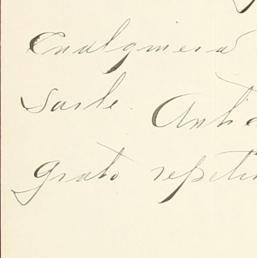 Cualquiera
Sarle. Antic
grato repetir